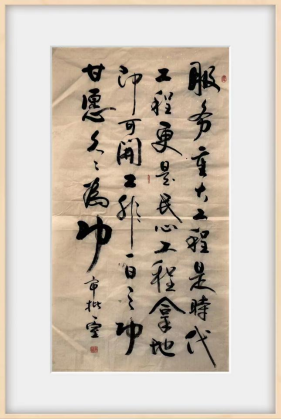 服务重大工程是時代
工程更是民心工程拿地
即可開工非一日之功
甘愿久〻為功
审批室